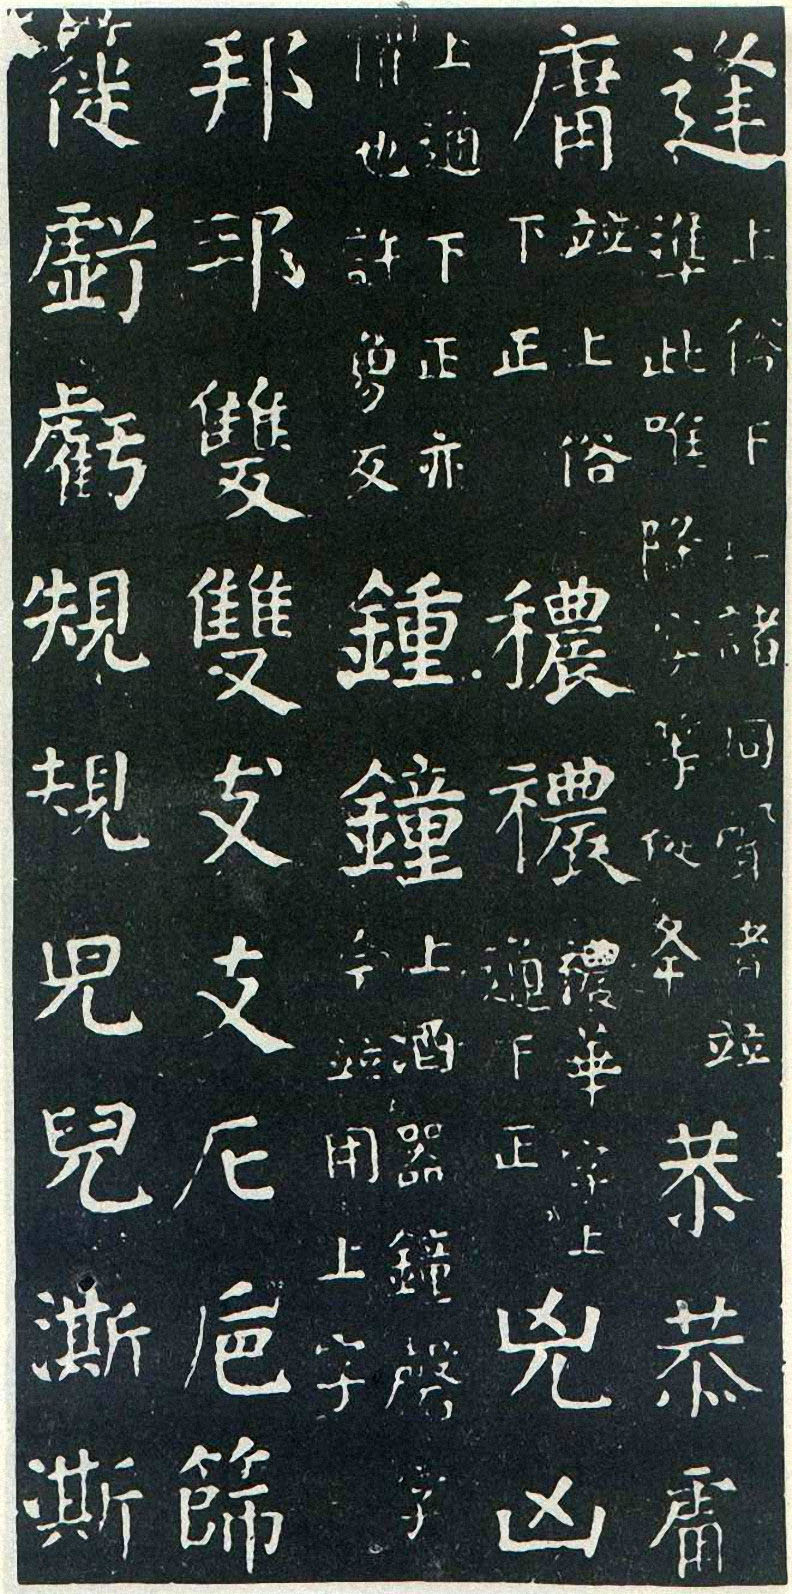 逢上俗下正諸同聲者並準此唯降字等從夅恭恭
庸並上俗下正穠禯禯華字上通下正兇凶
上通下正亦懼也許勇反鍾鐘上酒器鐘磬字今並用上字
邦邦雙雙支支卮巵篩
簁虧虧規規兒兒澌澌